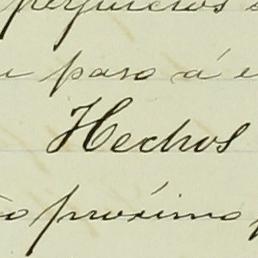 perjuicios
paso á e
Hechos
proximo